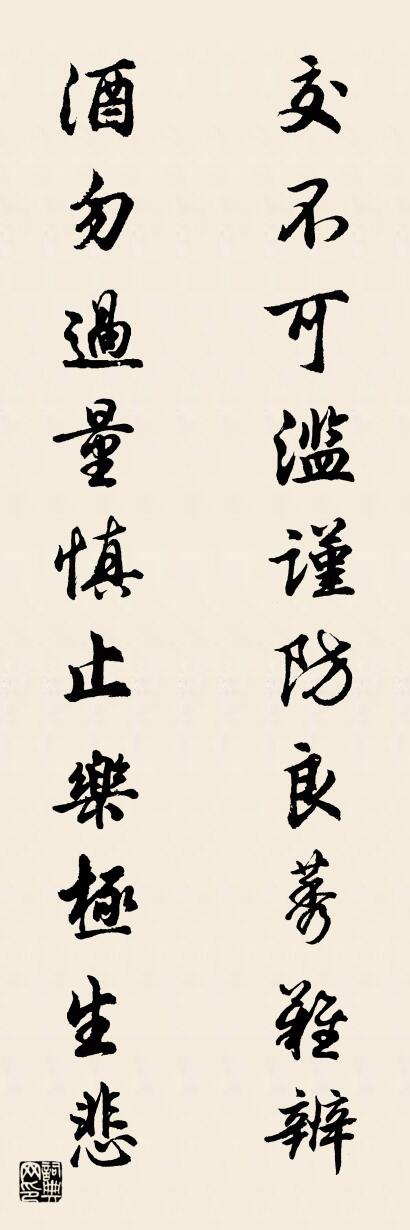 交不可濫謹防良莠難辨
酒勿過量慎止樂極生悲
詞典网印